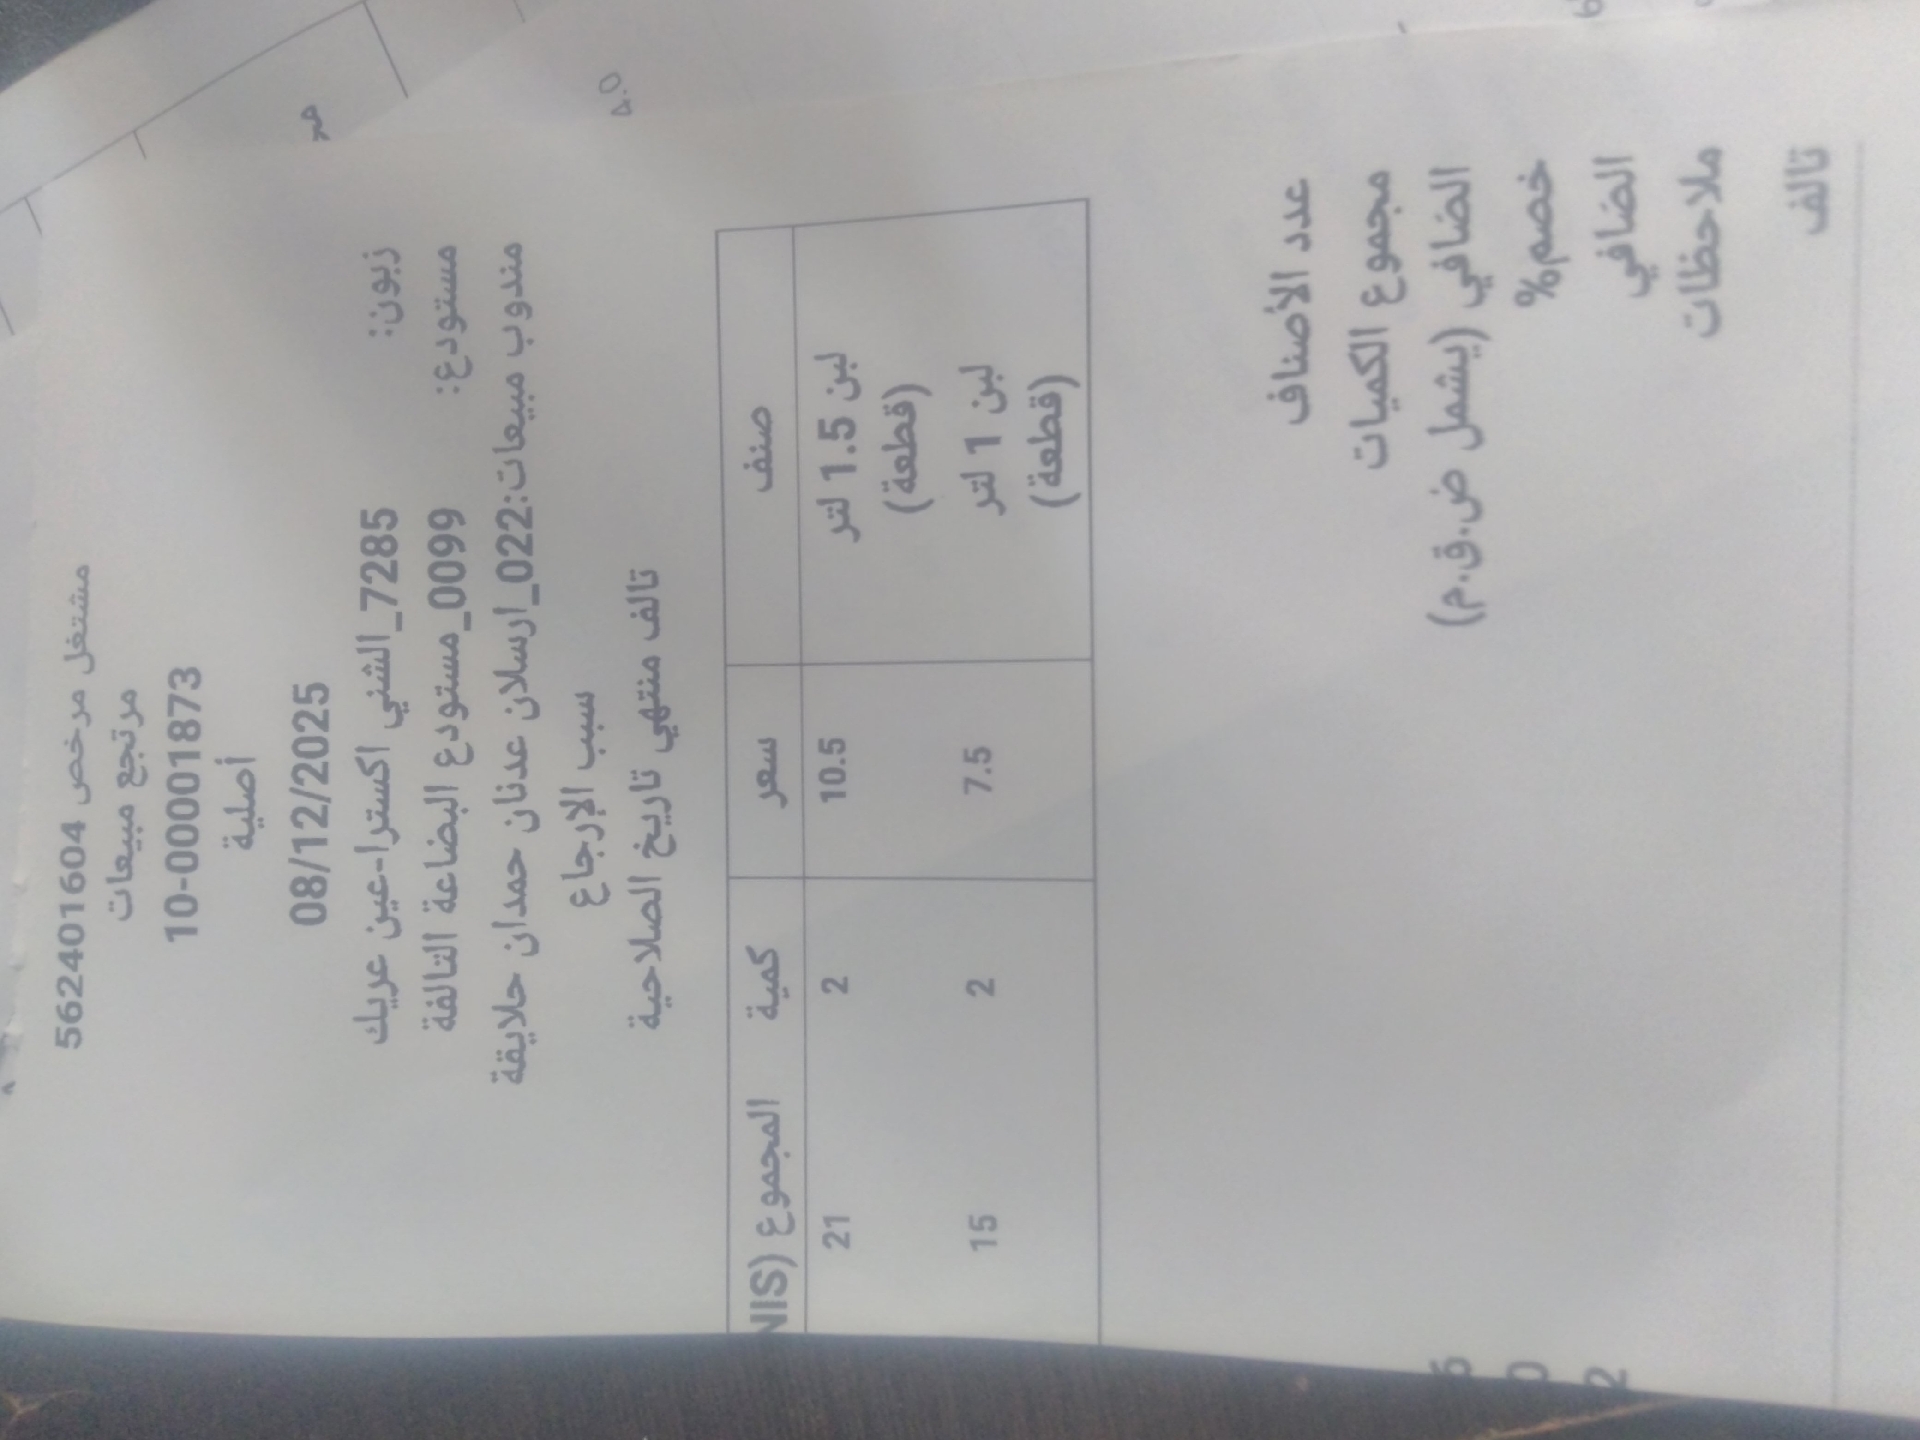 مشتغل مرخص 562401604
مرتجع مبيعات
10-00001873
أصلية
08/12/2025
زبون: 7285_الشني اكسترا-عين عريك
مستودع: 0099_مستودع البضاعة التالفة
مندوب مبيعات:022_ارسلان عدنان حمدان حلايقة
سبب الإرجاع
تالف منتهي تاريخ الصلاحية
صنف سعر كمية المجموع (NIS
لبن 1.5 لتر 10.5 2 21
(قطعة)
لبن 1 لتر 7.5 2 15
(قطعة)
عدد الأصناف
مجموع الكميات
الضافي (يشمل ض.ق.م)
خصم% 0
الضافي 2
ملاحظات
تالف